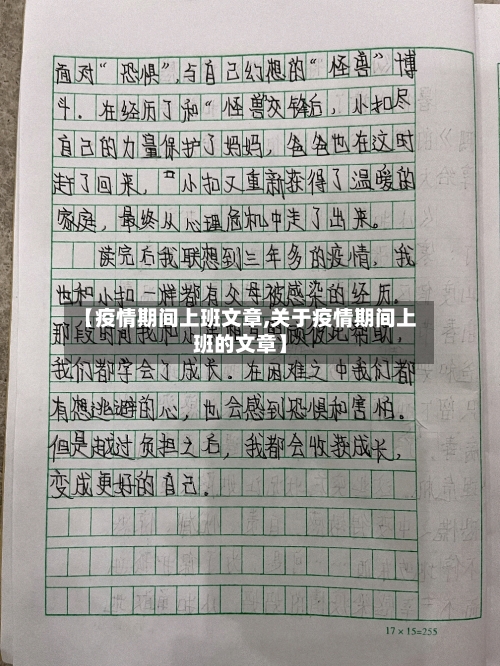 面对“恐惧”,与自己幻想的“怪兽”博
斗．在经历了和“怪兽交锋后，小扣尽
自己的力量保护了妈妈，爸爸也在这时
赶了回来，小扣又重新获得了温暖的
家庭，最终从心理危机中走了出来。
读完后我联想到三年多的疫情，我
也和小扣一样都有父母被感染的经历．
【疫情期间上班文章,关于疫情期间上
班的文章】
那段时间我和
彼此帮助，
我们都学会了成长．在困难之中我们都
有想逃避的心，也会感到恐惧和害怕。
但是越过负担之后，我都会收获成长，
变成更好的自己．
17×15=255